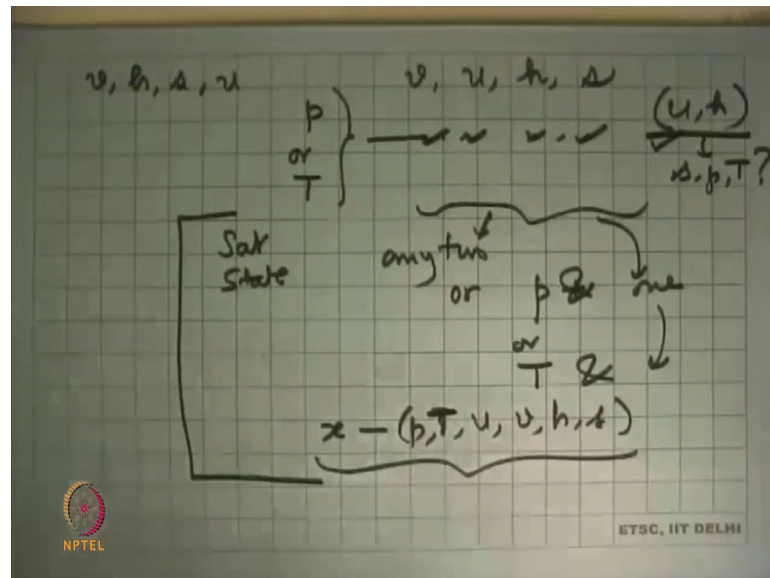 v, h, s, u    v, u, h, s
p or T } — ✓ ✓ ✓ ✓ (u, h)
s, p, T?
Sat State
any two or p & one
or T &
x – (p, T, u, v, h, s)
ETSC, IIT DELHI
NPTEL